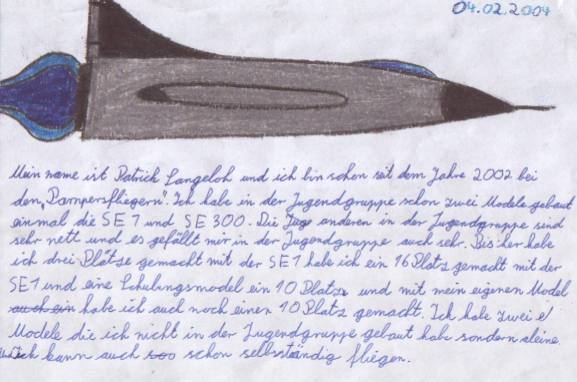 04.02.2004
Mein name ist Patrick Langeloh und ich bin schon seit dem Jahre 2002 bei
den „Dampersfliegern“. Ich habe in der Jugendgruppe schon zwei Modele gebaut
einmal die SE 1 und SE 300. Die Juge enderen in der Jugendgruppe sind
sehr nett und es gefällt mir in der Jugendgruppe auch sehr. Bis her habe
ich drei Plätze gemacht mit der SE1 habe ich ein 16 Platz gemacht mit der
SE1 und eine Schulungsmodel ein 10 Platz und mit mein eigenen Model
auch ein habe ich auch noch einen 10 Platz gemacht. Ich habe zwei
Modele die ich nicht in der Jugendgruppe gebaut hab sondern aleine
Ich kann auch soo schon selbsständig fliegen.